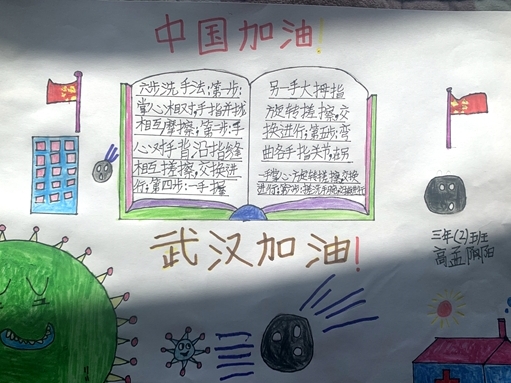 中国加油!
六步洗手法:第一步:
掌心相对,手指并拢
相互摩擦;第二步:手
心对手指沿指缝
相互搓擦,交换进
行;第四步:一手握
另一手大拇指
旋转搓擦,交
换进行;第五步:弯
曲各手指关节,在另
一手掌心方旋转搓擦,交换
进行;第六步:搓洗手腕,交换进行
武汉加油!
三年(2)班
高孟阳